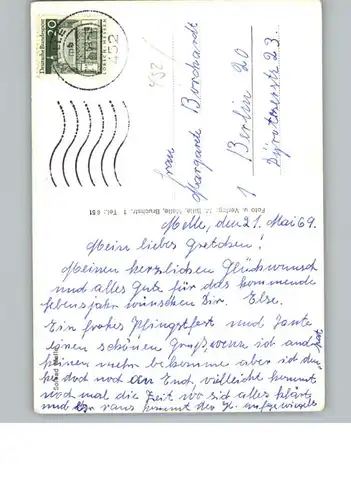 Deutsche Bundespost
20
452
452
Frau
Margarde Borchardt
1 Berlin 20
Foto u. Verlag: M. Melle, Bruchstr. 1 Tel.: 651
Melle, den 21. Mai 69.
Mein liebes Gretchen!
Meinen herzlichen Glückwunsch
und alles Gute für das kommende
Lebensjahr wünschen Dir. Else.
Ein frohes Pfingstfest und Tante
einen schönen Gruß, wenn ich auch
keinen mehr bekomme aber ich den
ke doch noch an Euch, vielleicht kommt
noch mal die Zeit wo sich alles klärt
und raus kommt der